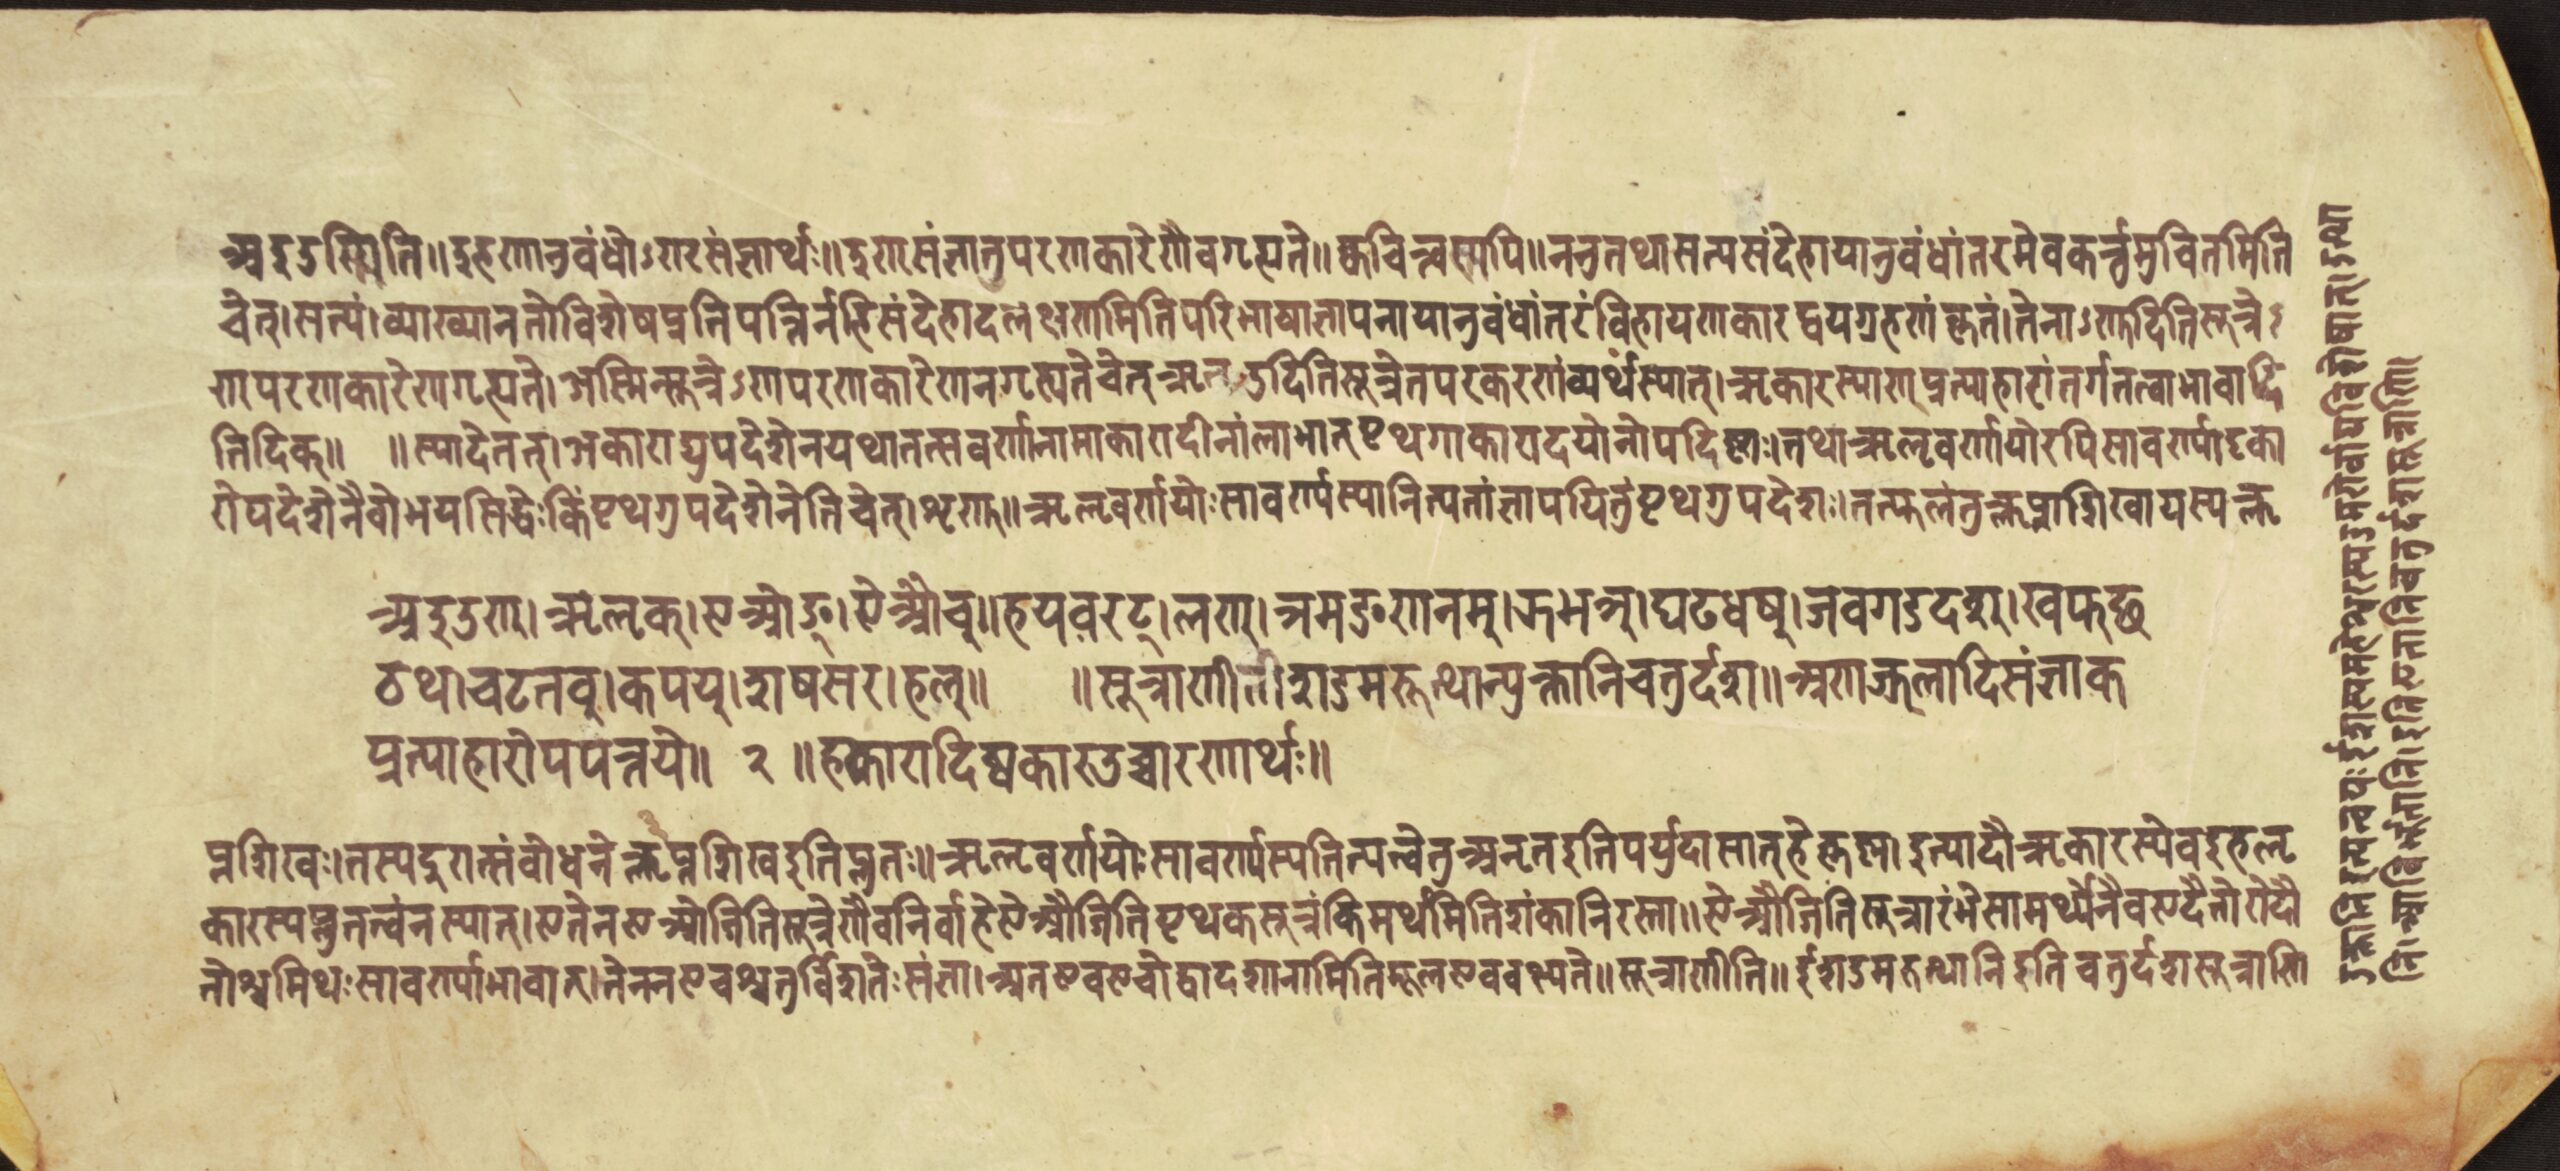 अइउणिति॥इहणानुबंधोऽण्संज्ञार्थः॥इण्संज्ञातुपरणकारेणैवगृह्यते॥क्वचित्त्वस्यपि॥ननुतथासत्यसंदेहायानुबंधांतरमेवकर्त्तुमुचितमिति
चेत्।सत्यं।व्याख्यानतोविशेषप्रतिपत्तिर्नहिसंदेहादलक्षणमितिपरिभाषाज्ञापनायानुबंधांतरंविहायणकारद्वयग्रहणंकृतं।तेनाऽणुदितिसूत्रेऽ
णपरणकारेणगृह्यते।अस्मिन्सूत्रेऽणपरणकारेणनगृह्यतेचेत्ऋतउदितिसूत्रेतपरकरणंव्यर्थंस्यात्।ऋकारस्याण्प्रत्याहारांतर्गतत्वाभावादि
तिदिक्॥ ॥स्यादेतत्।अकाराद्युपदेशेनयथातत्सवर्णानामाकारादीनांलाभात्पृथगाकारादयोनोपदिष्टाः।तथाऋलृवर्णयोरपिसावर्ण्यादृका
रोपदेशेनैवोभयसिद्धेःकिंपृथगुपदेशेनेतिचेत्।शृणु॥ऋलृवर्णयोःसावर्ण्यस्यानित्यतांज्ञापयितुंपृथगुपदेशः।तत्फलंतुक्लृप्ताशिखायस्यक्लृ
अइउण्।ऋलृक्।एओङ्।ऐऔच्॥हयवरट्।लण्।ञमङणनम्।झभञ्।घढधष्।जबगडदश्।खफछ
ठथ।चटतव्।कपय्।शषसर।हल्॥ ॥सूत्राणीतीशडमरूत्थान्युक्तानिचतुर्दश॥अणज्झलादिसंज्ञाक
प्रत्याहारोपपत्तये॥ २ ॥हकारादिष्वकारउच्चारणार्थः॥
प्तशिखः।तस्यदुरात्संबोधनेक्लृप्तशिखइतिप्लुतः॥ऋलृवर्णयोःसावर्ण्यस्यनित्यत्वेतुअनृतइतिपर्युदासात्हेकृष्ण।इत्यादौऋकारस्येवइहलृ
कारस्यप्लुतत्वंनस्यात्।एतेनएओङितिसूत्रेणैवनिर्वाहेऐऔजितिपृथकसूत्रंकिमर्थमितिशंकानिरस्ता॥ऐऔजितिसूत्रारंभेसामर्थ्येनैवएदैतोरोदौ
तोश्चमिथःसावर्ण्याभावात्।तेननएचश्चतुर्विंशतेःसंज्ञा।अतएवएचोद्वादशानामितिमूलएववक्ष्यते॥सूत्राणीति॥ईशडमरूत्थानिइतिचतुर्दशसूत्राणि